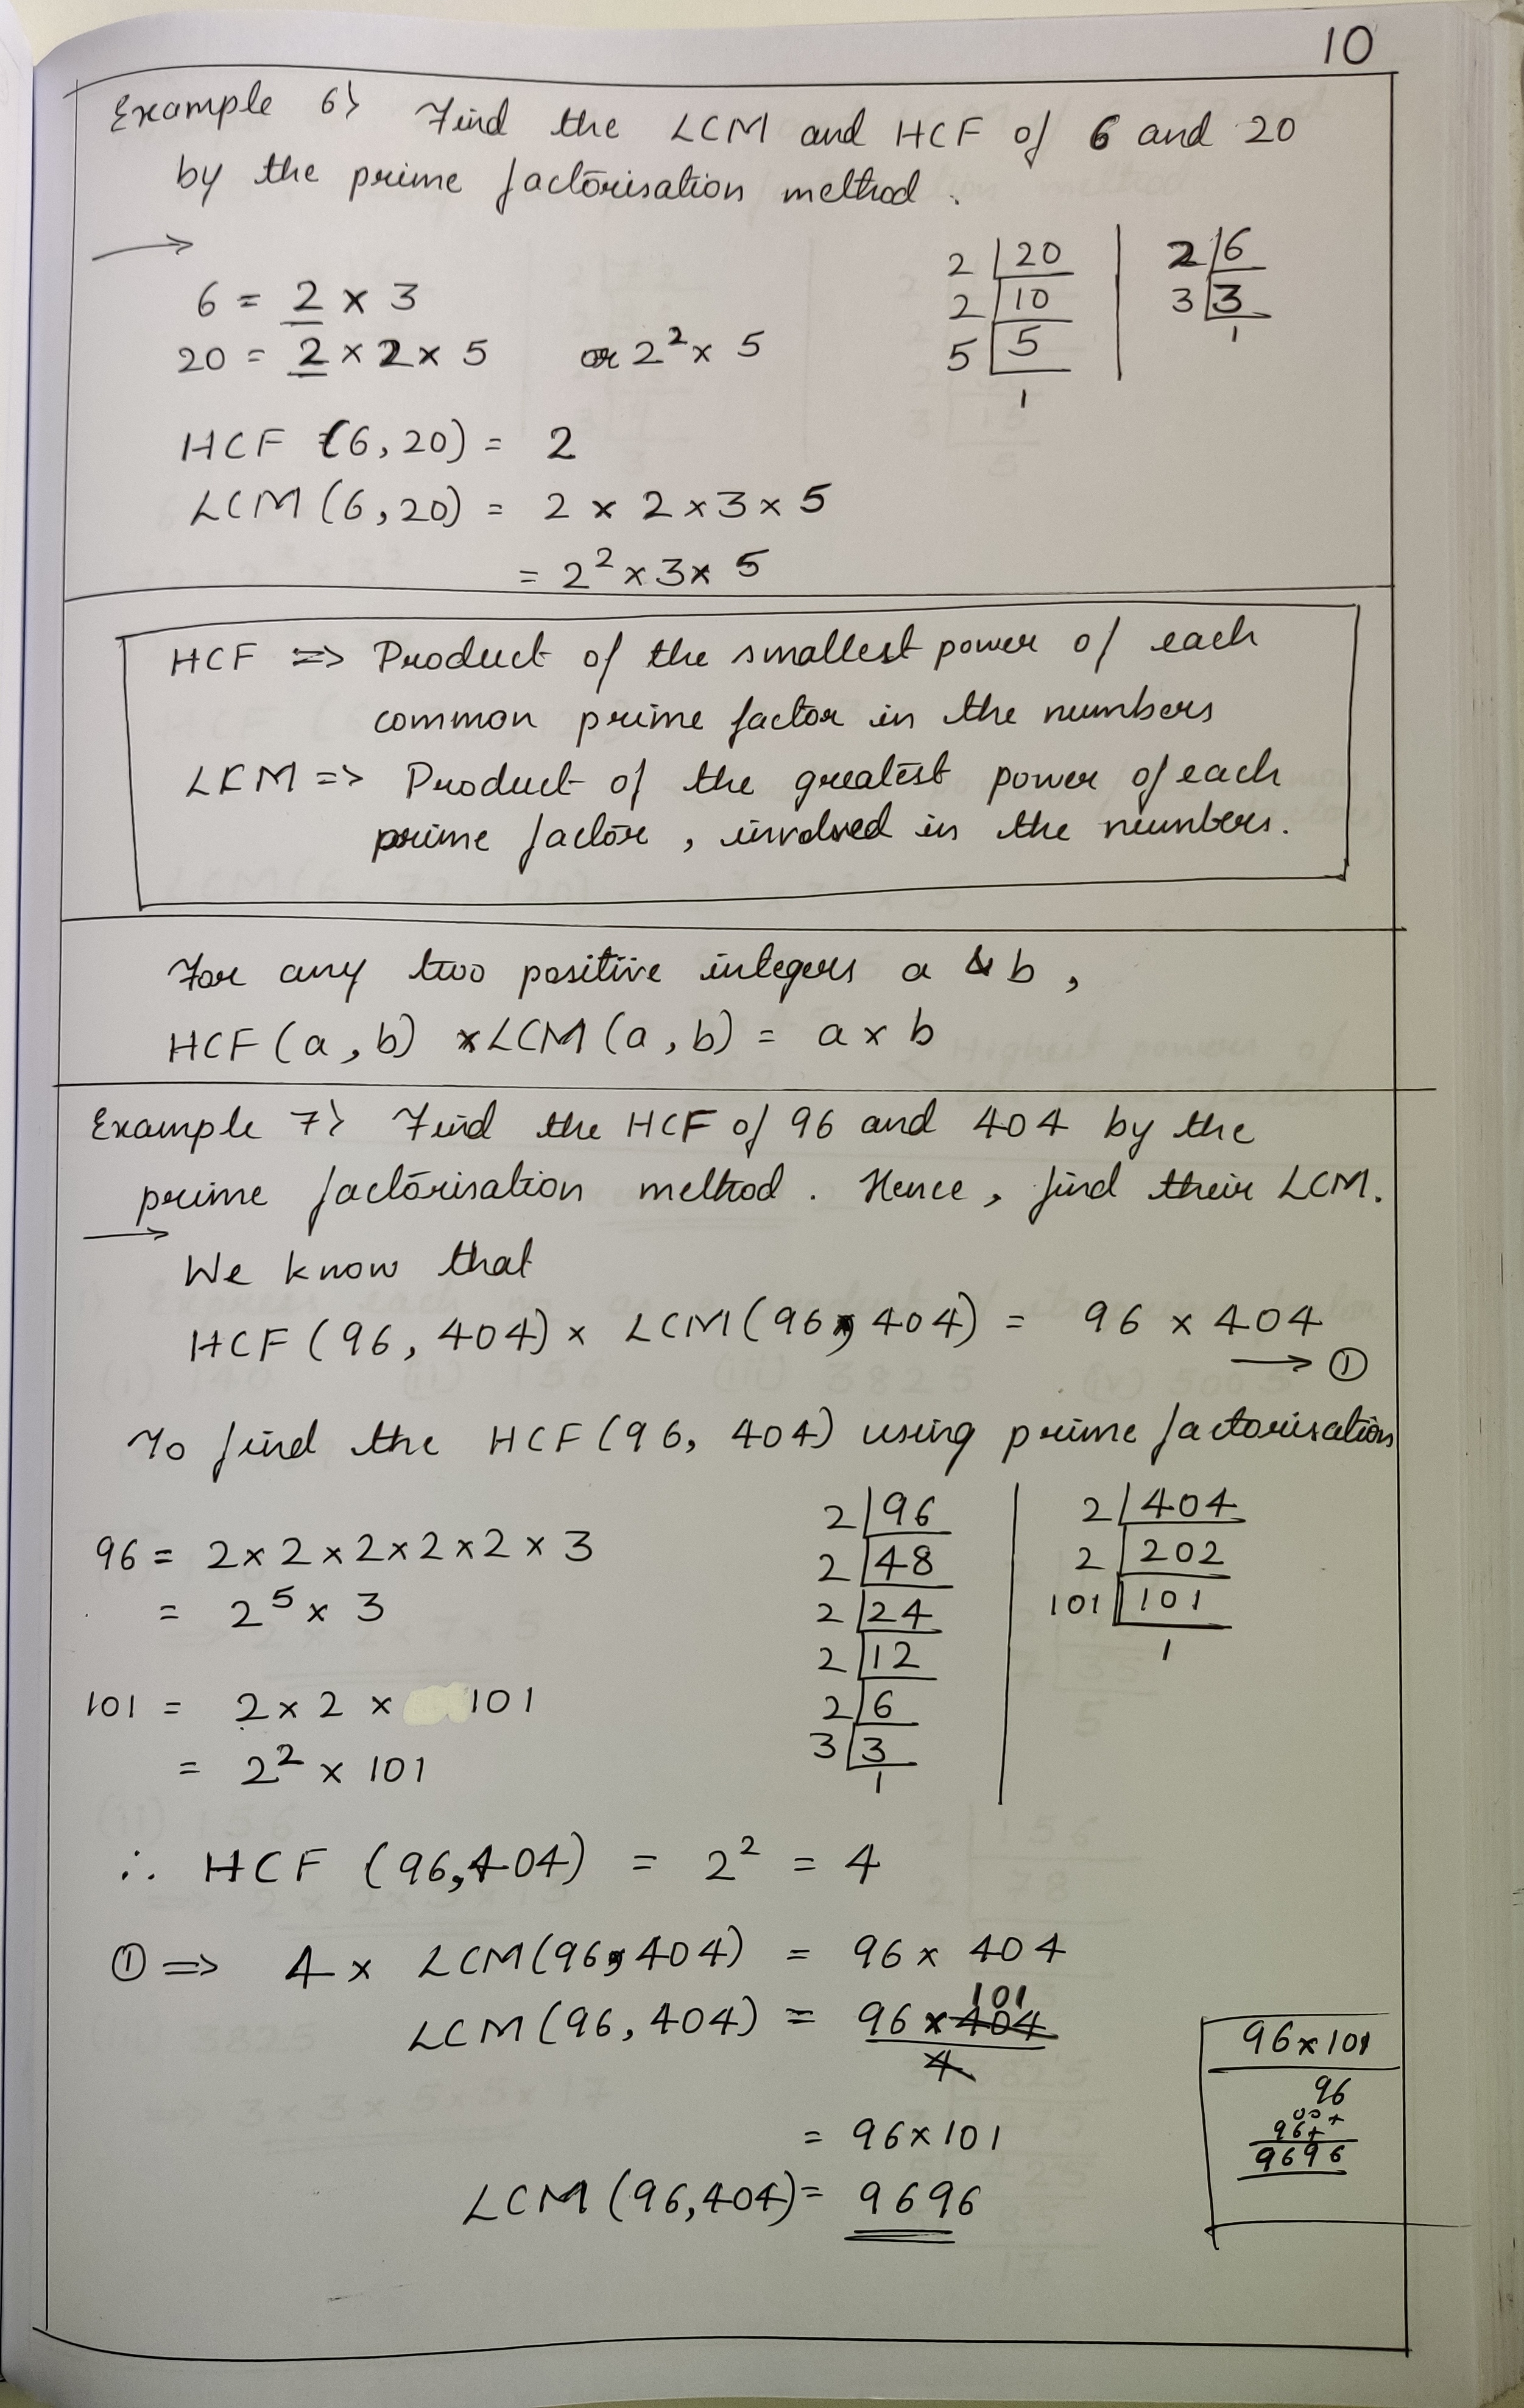 10
Example 6> Find the LCM and HCF of 6 and 20
by the prime factorisation method.
→
6 = 2 × 3
20 = 2 × 2 × 5 or 2² × 5
2 | 20
2 | 10
5 | 5
1
2 | 6
3 | 3
1
HCF (6, 20) = 2
LCM (6, 20) = 2 × 2 × 3 × 5
= 2² × 3 × 5
HCF => Product of the smallest power of each
common prime factor in the numbers
LCM => Product of the greatest power of each
prime factor, involved in the numbers.
For any two positive integers a & b,
HCF (a, b) × LCM (a, b) = a × b
Example 7> Find the HCF of 96 and 404 by the
prime factorisation method. Hence, find their LCM.
→
We know that
HCF (96, 404) × LCM (96, 404) = 96 × 404
→ ①
To find the HCF (96, 404) using prime factorisation
96 = 2 × 2 × 2 × 2 × 2 × 3
= 2⁵ × 3
101 = 2 × 2 × 101
= 2² × 101
2 | 96
2 | 48
2 | 24
2 | 12
2 | 6
3 | 3
1
2 | 404
2 | 202
101 | 101
1
∴ HCF (96, 404) = 2² = 4
① => 4 × LCM (96, 404) = 96 × 404
101
LCM (96, 404) = 96 × 404
4
= 96 × 101
LCM (96, 404) = 9696
96 × 101
96
00+
96++
9696